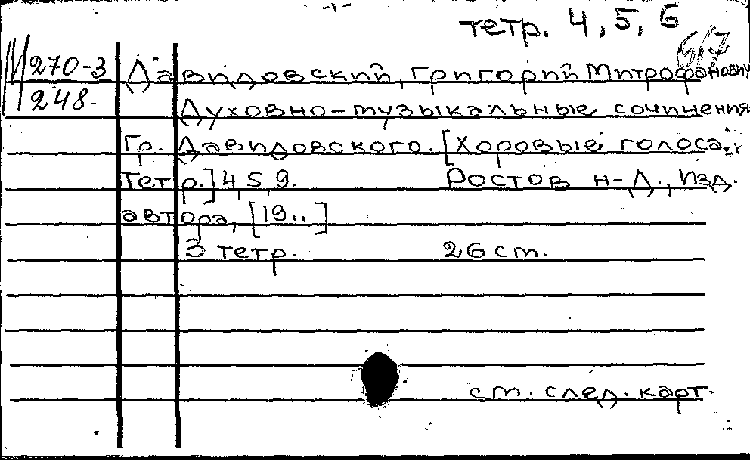 -1-
тетр. 4, 5, 6
270-3
248-
Давидовский, Григорий Митрофанович
Духовно-музыкальные сочинения
Гр. Давидовского. [Хоровые голоса.
Тетр.] 4, 5, 9. Ростов н-Д., Изд.
автора, [19..]
3 тетр. 26 cm.
см. след. карт.